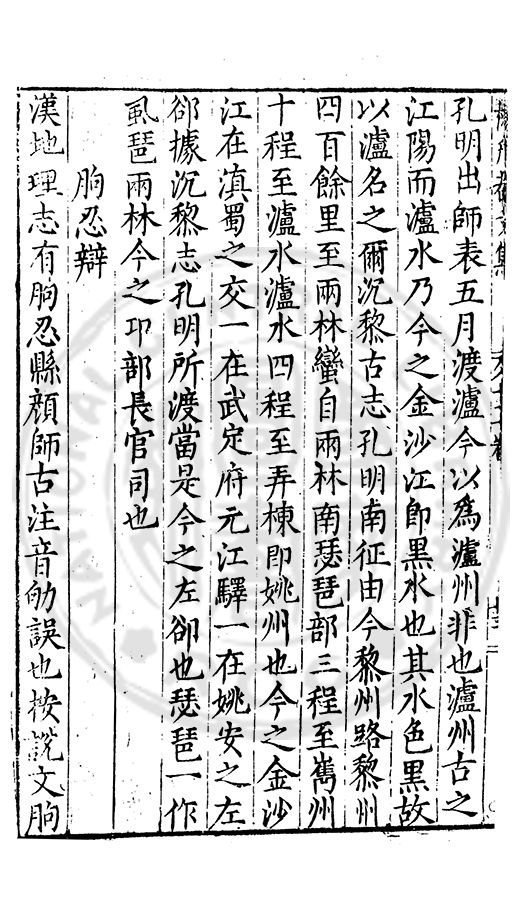 孔明出師表五月渡瀘今以為瀘州非也瀘州古之
江陽而瀘水乃今之金沙江即黑水也其水色黑故
以瀘名之爾沉黎古志孔明南征由今黎州路黎州
四百餘里至兩林蠻自兩林南瑟琶部三程至嶲州
十程至瀘水瀘水四程至弄棟即姚州也今之金沙
江在滇蜀之交一在武定府元江驛一在姚安之左
郤據沉黎志孔明所渡當是今之左郤也瑟琶一作
虱琶兩林今之邛部長官司也
朐忍辯
漢地理志有朐忍縣顏師古注音劬誤也按說文朐